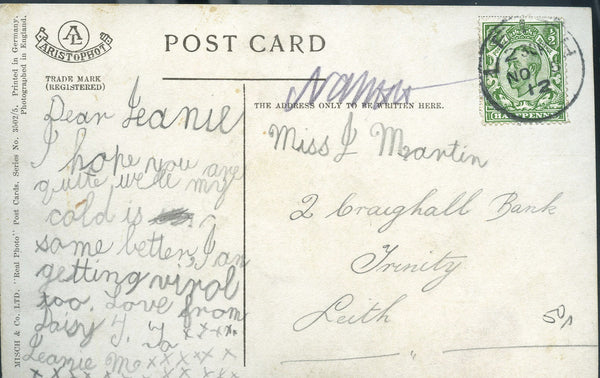 AL
ARISTOPHOT
TRADE MARK
(REGISTERED)
POST CARD
THE ADDRESS ONLY TO BE WRITTEN HERE.
MISCH & Co. LTD. "Real Photo" Post Cards. Series No. 3502/5. Printed in Germany.
Photographed in England.
Dear Jeanie
I hope you are
quite well my
cold is
some better, I am
getting virol
too. Love from
Daisy J. xxxx
Jeanie M xxxxx
Miss J Martin
2 Craighall Bank
Trinity
Leith
LEITH
NO
12
1/2
HALFPENNY
50